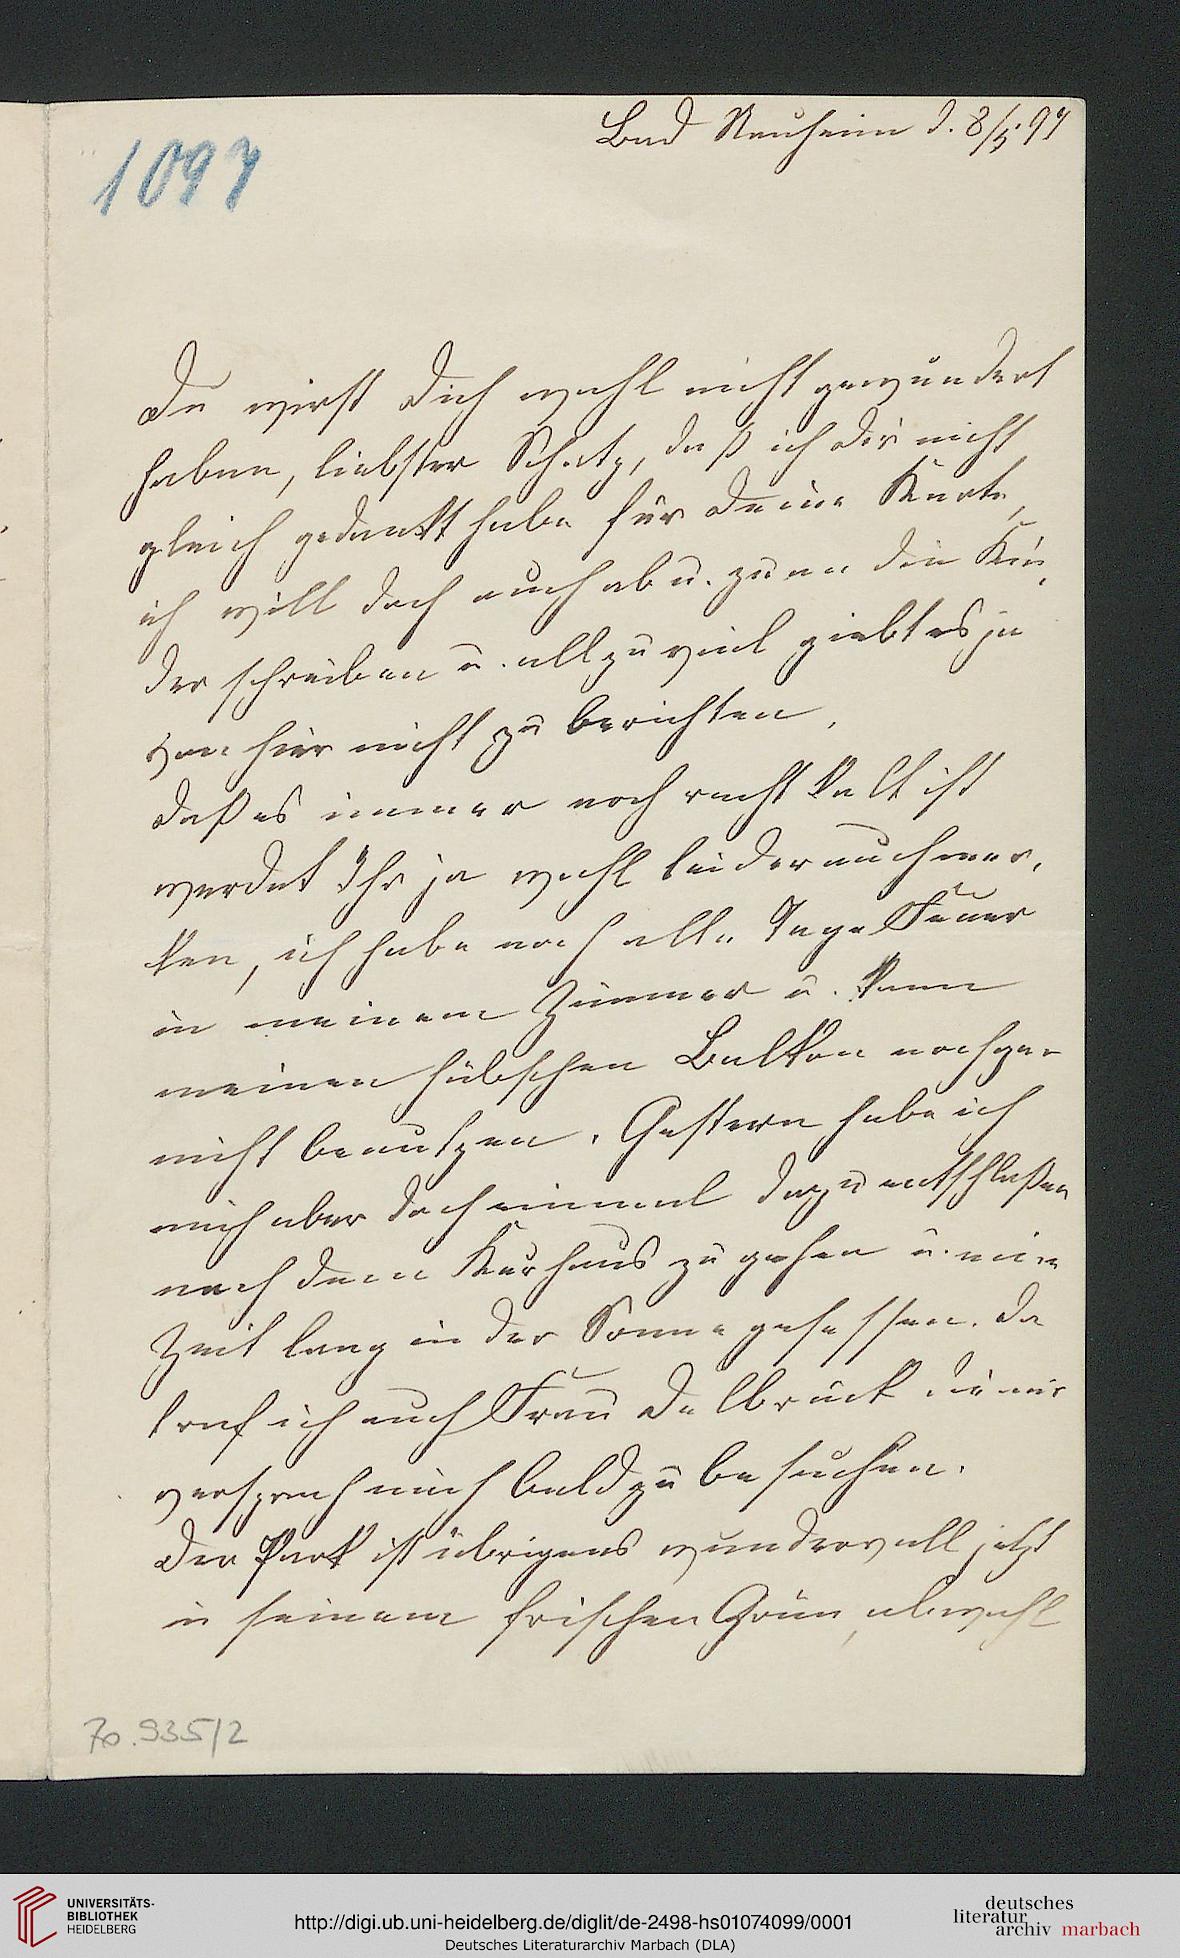 Bad Nauheim d. 8/5. 97
1097
Du wirst Dich wohl nicht gewundert
haben, liebster Schatz, daß ich Dir nicht
gleich gedankt habe für Deine Karte,
ich will doch auch ab u. zu an die Kin-
der schreiben u. allzuviel giebt es ja
von hier nicht zu berichten.
Daß es immer noch recht kalt ist
werdet Ihr ja wohl leider auch mer-
ken, ich habe noch alle Tage Feuer
in meinem Zimmer u. kann
meinen hübschen Balkon noch gar
nicht benutzen. Gestern habe ich
mich aber doch einmal dazu entschloßen
nach dem Kurhaus zu gehen u. eine
Zeit lang in der Sonne gesessen. Da
traf ich auch Frau Delbrück die mir
versprach mich bald zu besuchen.
Der Park ist übrigens wundervoll jetzt
in seinem frischen Grün, obwohl
70.935/2
UNIVERSITÄTS-
BIBLIOTHEK
HEIDELBERG
http://digi.ub.uni-heidelberg.de/diglit/de-2498-hs01074099/0001
Deutsches Literaturarchiv Marbach (DLA)
deutsches
literatur
archiv marbach